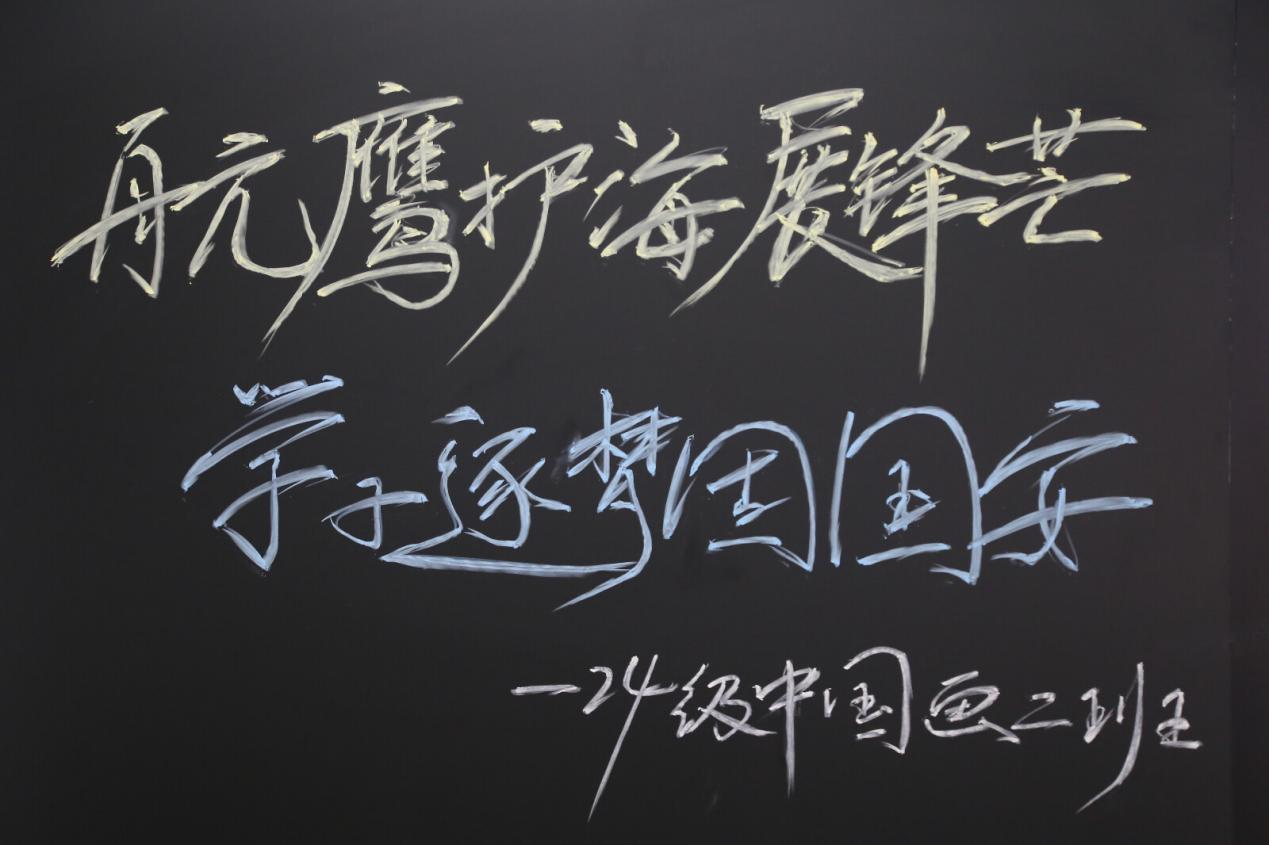 航鹰护海展锋芒
学子逐梦固国安
—24级中国画二班